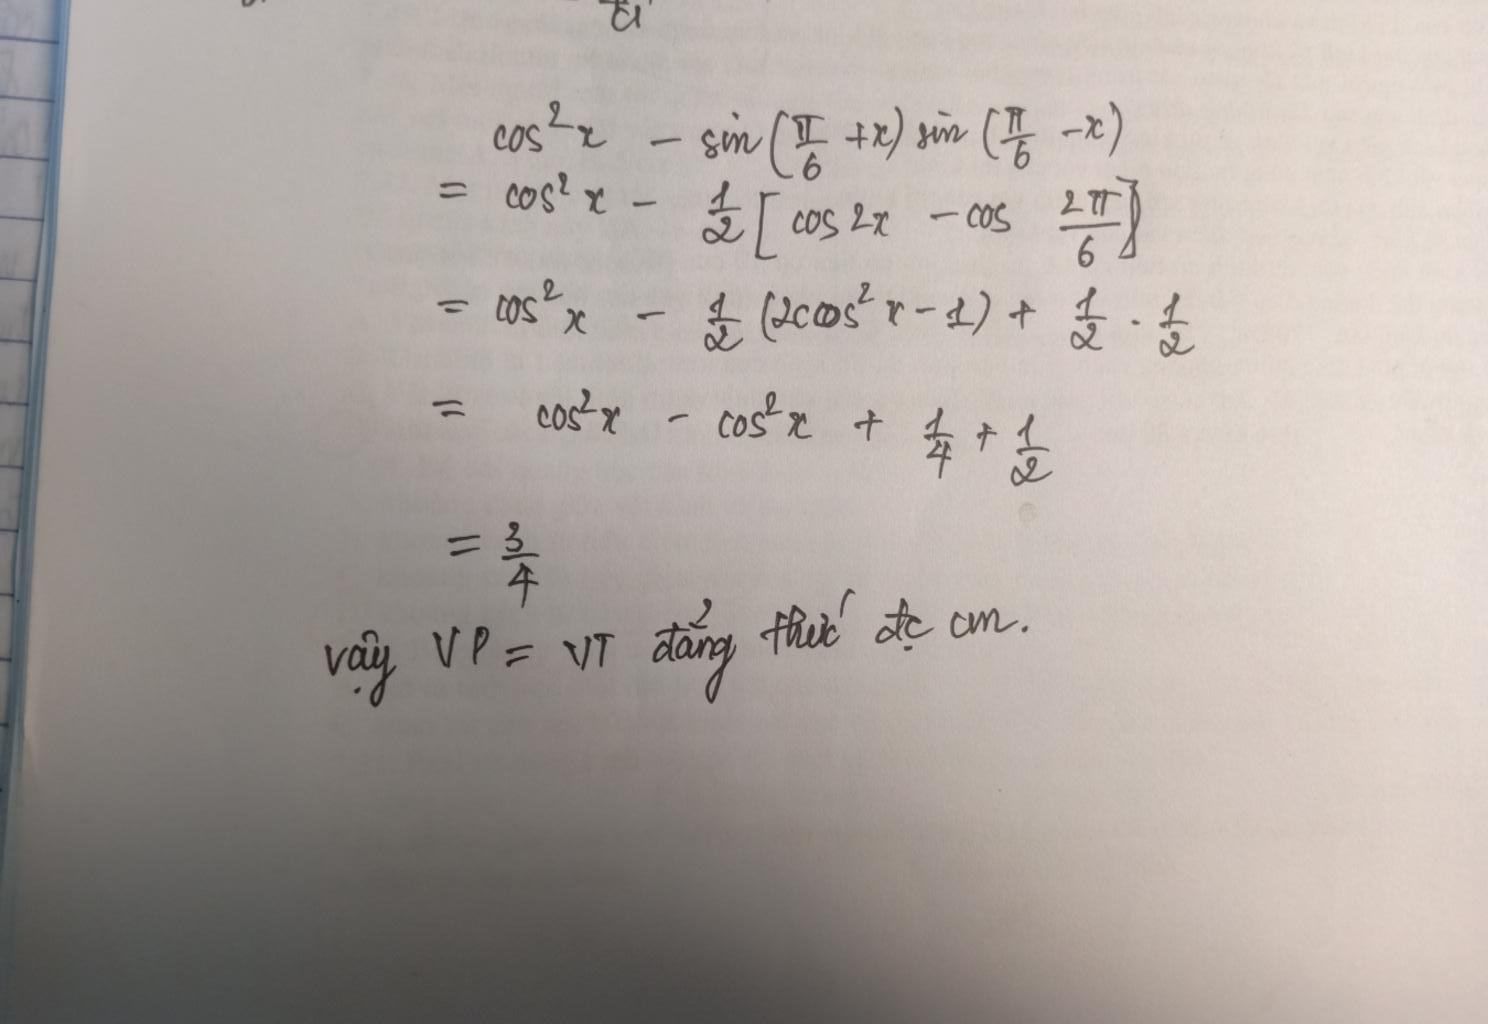 cos²x − sin(π/6 +x) sin(π/6 −x)
= cos²x − 1/2 [cos 2x − cos 2π/6]
= cos²x − 1/2 (2cos²x − 1) + 1/2 . 1/2
= cos²x − cos²x + 1/4 + 1/2
= 3/4
vậy VP = VT đẳng thức đc cm.